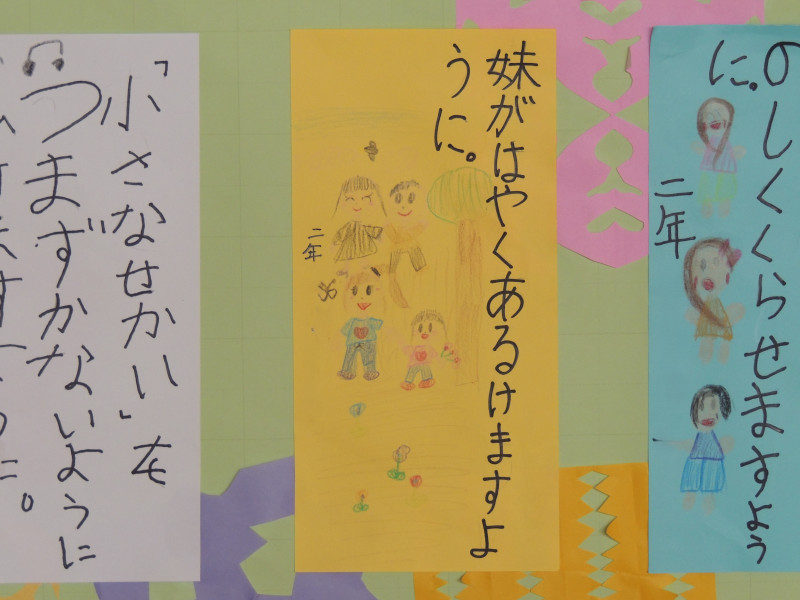 のしくくらせますよう
に。
二年
妹がはやくあるけますよ
うに。
二年
「小さなせかい」を
つまずかないように